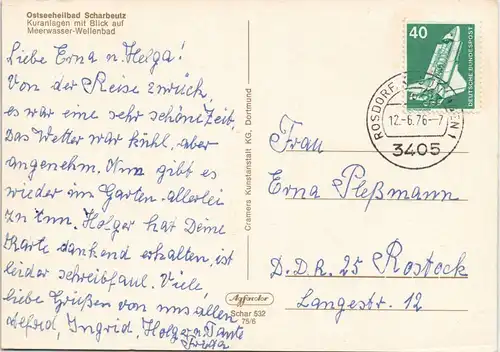 Ostseeheilbad Scharbeutz
Kuranlagen mit Blick auf
Meerwasser-Wellenbad
Liebe Erna u. Helga!
Von der Reise zurück,
es war eine sehr schöne Zeit,
Das Wetter war kühl, aber
angenehm. Nun gibt es
wieder im Garten allerlei
zu tun. Holger hat Deine
Karte dankend erhalten, ist
leider schreibfaul. Viele,
liebe Grüßen von uns allen
Alfred, Ingrid, Holger u. Tante
Frieda
Cramers Kunstanstalt KG, Dortmund
Agfacolor
Schar 532
75/6
40
DEUTSCHE BUNDESPOST
ROSDORF
12.-6.76-7
3405
Frau
Erna Pleßmann
D.D.R. 25 Rostock
Langestr. 12